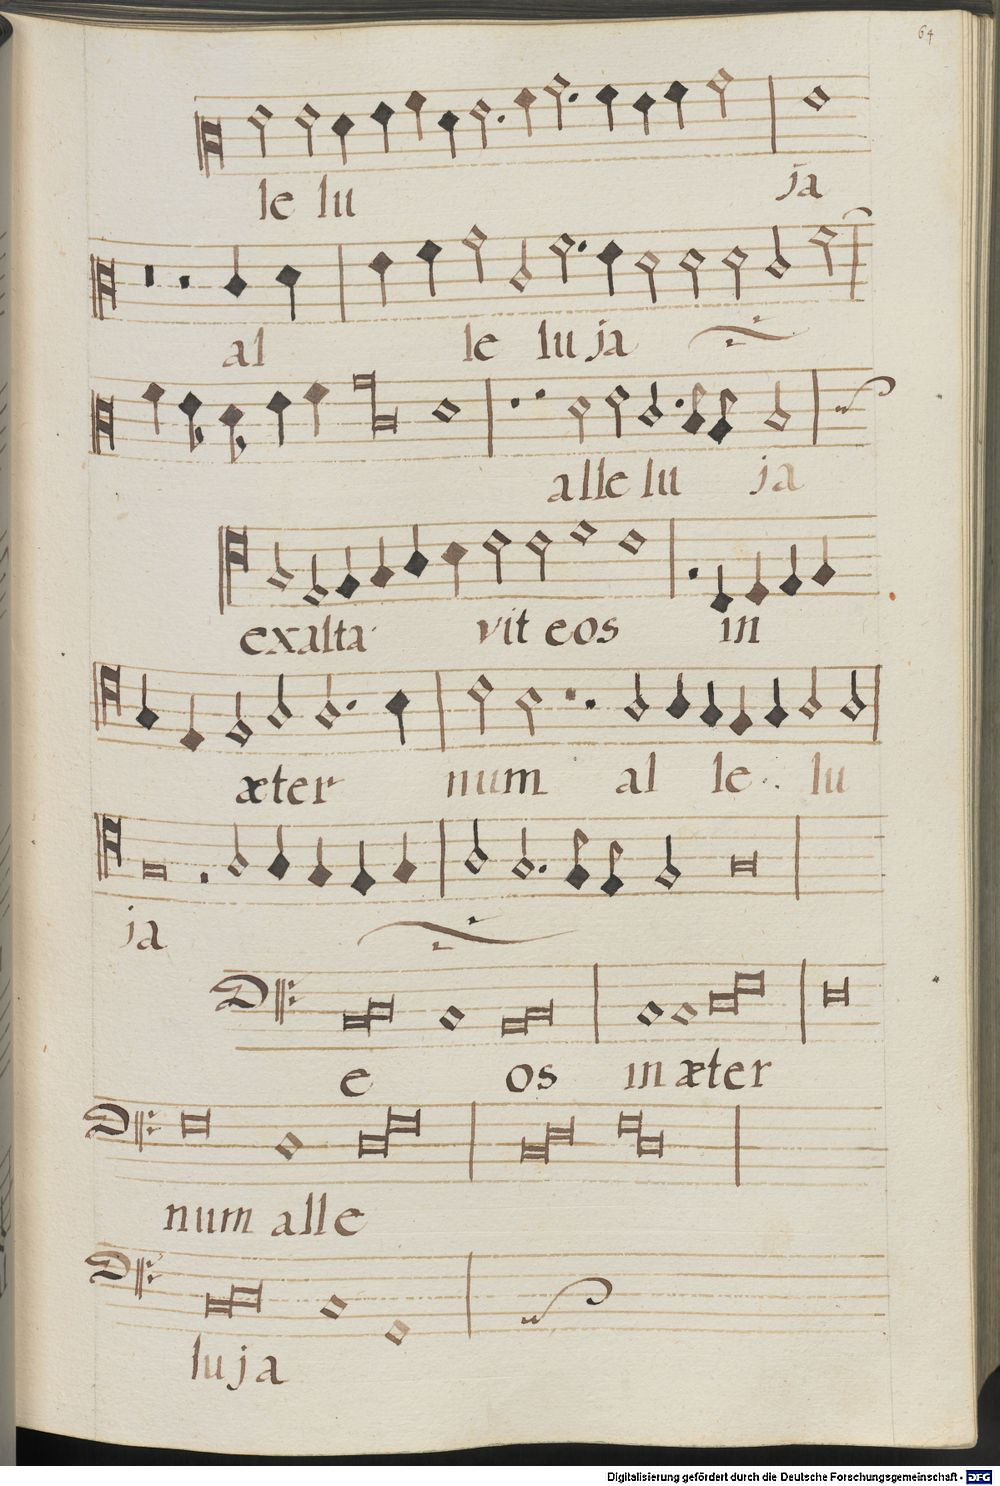 64
le lu ja
al le lu ja
alle lu ja
exalta vit eos in
æter num al le lu
ja
e os in æter
num alle
lu ja
Digitalisierung gefördert durch die Deutsche Forschungsgemeinschaft - DFG